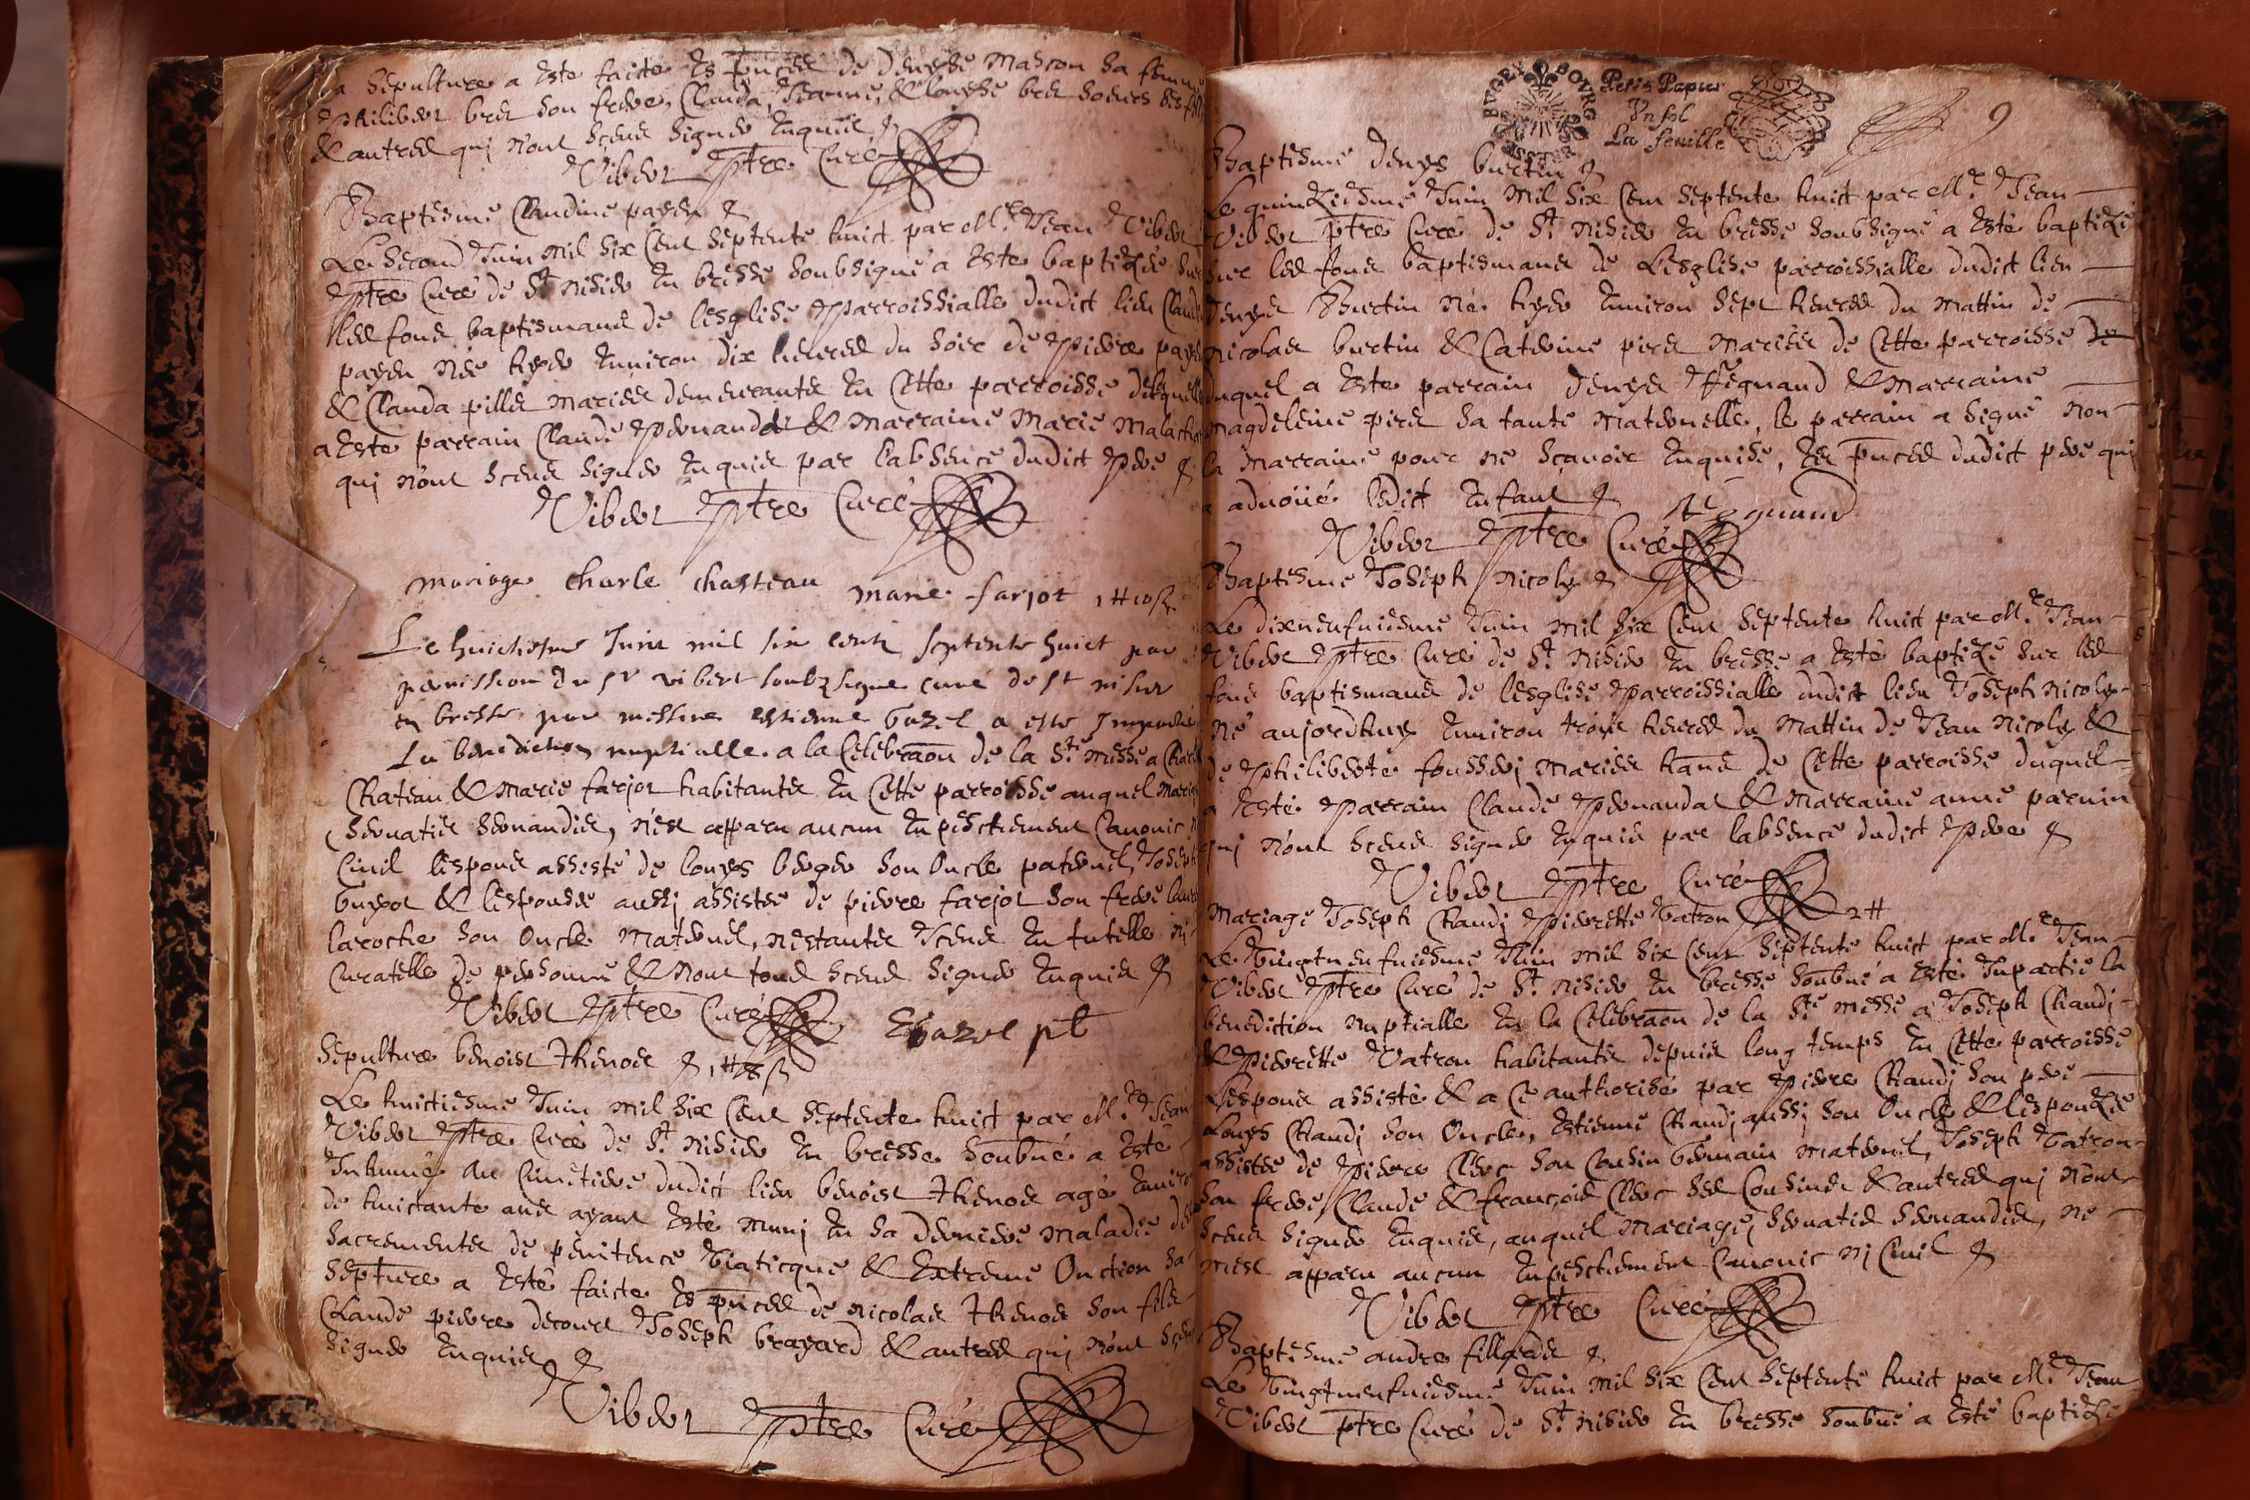 sa sepulture a este faicte Es pnces de Denyse Mascon sa femme
Philibert bred son frere, Clauda, Jeanne, & Louyse bred soeurs
& autres qui n'ont sceus signer Enquis
Vibert Ptre Curé
Baptesme Claudine payen
Le second Juin mil six cent septente huict par Mre Jean Vibert
Ptre Curé de St Nisier En bresse soubsigné a Esté baptizée sur
lles fons baptismaus de lesglise Parroissialle dudict lieu Claudine
payen née hyer Environ dix heures du soir de Pierre payen
& Clauda pillis maries demeurants En Cette parroisse de laquelle
a Este parrain Claude Penandet & marraine marie
qui n'ont sceus signer Enquis par labsence dudict Pere
Vibert Ptre Curé
mariage charle chasteau marie farjot
Le huictiesme Juin mil six cents septente huict par
permission du sr vibert soubzsigne cure de st nisier
en bresse par messire estienne buzel a este Impartie
La benediction nuptialle a la Celebraon de la Ste messe a Charle
Chateau & Marie farjot habitants En Cette parroisse auquel mariage
servatis servandis, n'est apparu aucun Enpeschement Canonic ni
Civil lespous assisté de Louys berger son Oncle paternel, Joseph
buyot & lespousee aussi assistée de pierre farjot son frere
laroche son Oncle maternel, nestants Iceus En tutelle ni
Curatelle de personne & n'ont tous sceus signer Enquis
Vibert Ptre Curé Ebuzel pt
Sepulture benoist Thenod
Le huictiesme Juin mil six Cent septente huict par Mre Jean
Vibert Ptre Curé de St Nisier En bresse soubne a Esté
Inhumé au Cimetiere dudict lieu benoist Thenod agé Environ
de huictante ans ayant Esté muni En sa derniere maladie des
sacrements de penitence Viaticque & Extreme Onction sa
septure a Esté faicte Es pnces de nicolas Thenod son fils
Claude pierre decours Joseph brayard & autres qui n'ont sceus
signer Enquis
Vibert Ptre Curé
BVGEY BOVRG BRESSE
Petit Papier
Vn sol
La feuille
9
Baptesme Denys burtin
Le quinziesme Juin mil six Cent septente huict par Mre Jean
Vibert Ptre Curé de St Nisier En bresse soubsigné a Esté baptizé
sur les fons baptismaus de Lesglise parroissialle dudict lieu
Denys Burtin né hyer Environ sept heures du mattin de
nicolas burtin & Caterine pird mariés de Cette parroisse
duquel a Este parrain Denys Regnaud & marraine
magdeleine pird sa tante maternelle, le parrain a signé non
la marraine pour ne sçavoir Enquise, Es pnces dudict pere qui
a advoüé ledict Enfant Regnaud
Vibert Ptre Curé
Baptesme Joseph nicoly
Le dixneufuiesme Juin mil six Cent septente huict par Mre Jean
Vibert Ptre Curé de St Nisier En bresse a Esté baptizé sur les
fons baptismaus de lesglise Parroissialle dudict lieu Joseph nicoly
né aujordhuy Environ trois heures du mattin de Jean nicoly &
de Philiberte mariés de Cette parroisse duquel
a Esté Parrain Claude Penandet & marraine anne
qui n'ont sceus signer Enquis par labsence dudict Pere
Vibert Ptre Curé
mariage Joseph Chandi Pierrette Vatron
Le Vingtneufuiesme Juin mil six Cent septente huict par Mre Jean
Vibert Ptre Curé de St Nisier En bresse soubné a Esté Impartie la
benediction nuptialle En la Celebraon de la Ste messe a Joseph Chandi
& Pierrette Vatron habitants depuis long temps En Cette parroisse
Lespous assisté & a Ce authorisé par Pierre Chandi son pere
Louys Chandi son Oncle, Estienne Chandi aussi son Oncle & lespouzée
assistée de Pierre Clerc son Cousin Germain maternel, Joseph Vatron
son frere, Claude & françois Clerc ses Cousins & autres qui n'ont
sceus signer Enquis, auquel mariage, servatis servandis, ne
n'est apparu aucun Enpeschement Canonic ni Civil
Vibert Ptre Curé
Baptesme andre
Le Vingtneufuiesme Juin mil six Cent septente huict par Mre Jean
Vibert Ptre Curé de St Nisier En bresse soubné a Esté baptizé